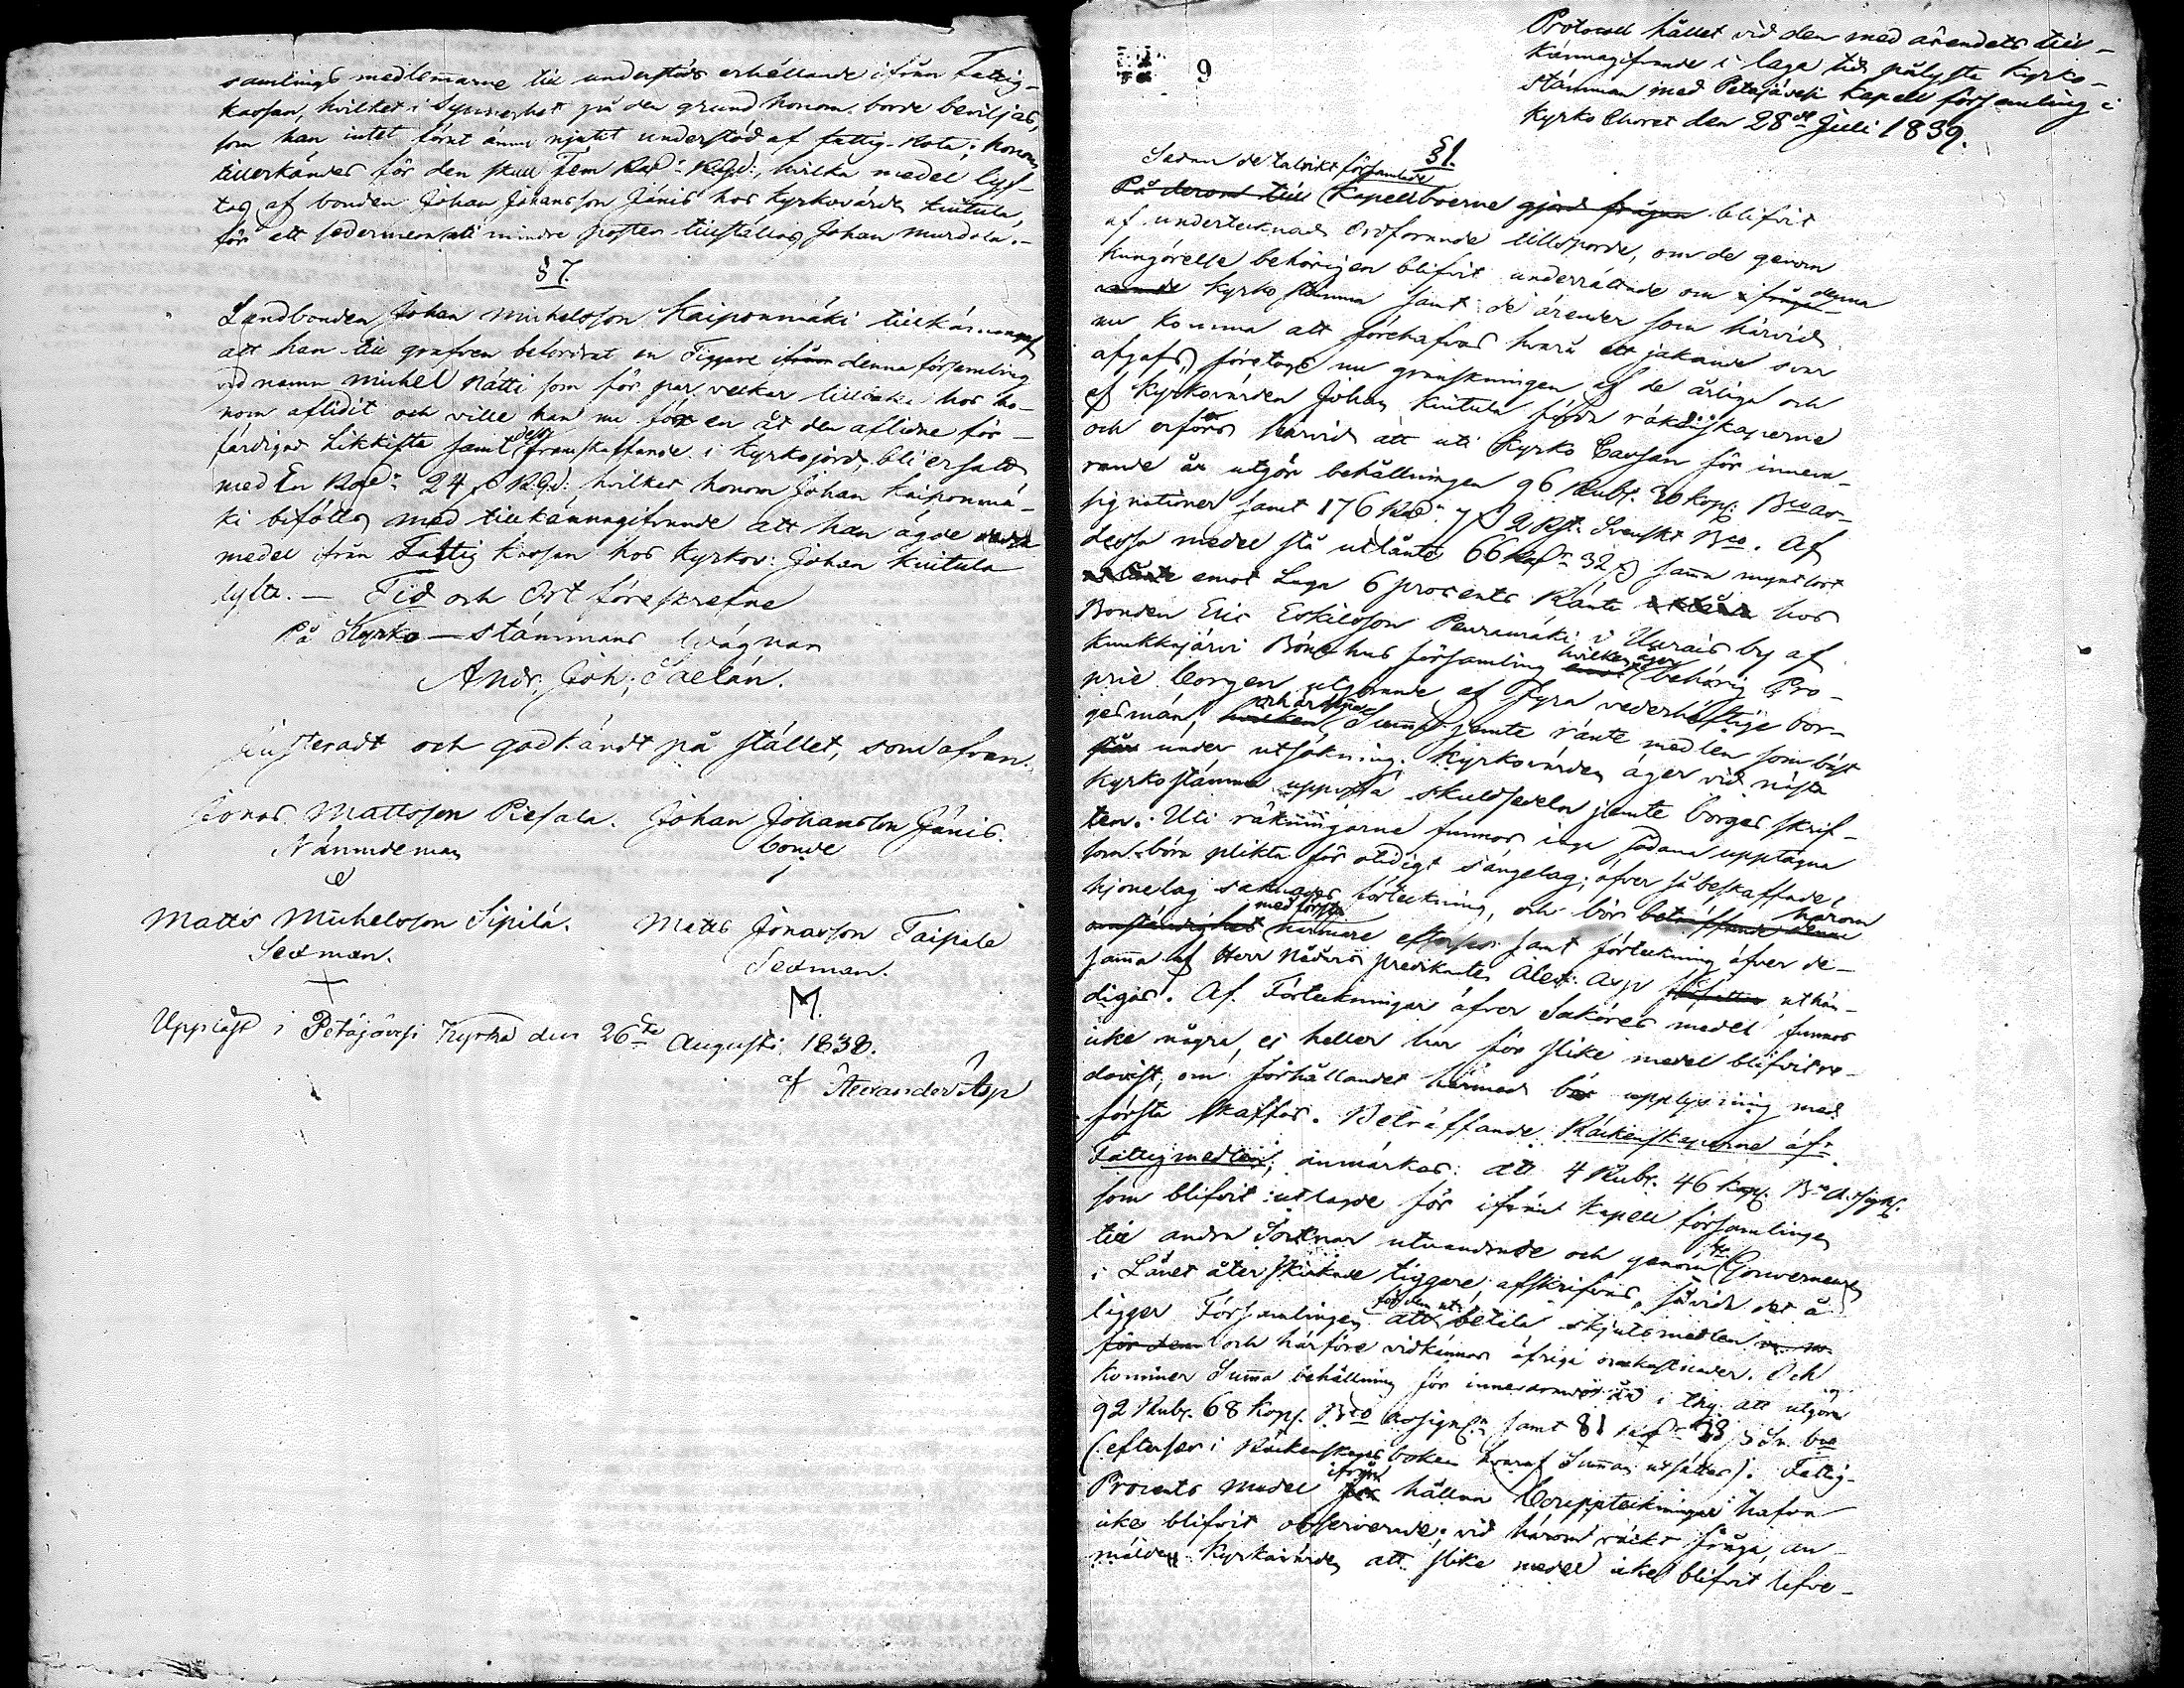 samlings medlemarne till understöds erhållande ifrån Fattig-
kassan, hvilket i synnerhet på den grund honom borde beviljas,
som han intet förut ännu njutit understöd af fattig-Rota; honom
tillerkändes för den skull Fem Rdr Rgd:, hvilka medel lyf-
tas af bonden Johan Johansson Jänis hos Kyrkovärden Kiutula,
för att sedermera uti mindre poster tillställas Johan Murdola.-
§ 7.
Landbonden Johan Michelsson Kaiponmäki tillkännagaf
att han till grafven befordrat en Tiggare ifrån denna församling
vid namn Michel Nätti som för par veckor tillbaka hos ho-
nom aflidit och ville han nu för en åt den aflidne för-
färdigad Likkista samt dess framskaffande i Kyrkojord, bli ersatt
med En Rdr 24 s Rgd: hvilket honom Johan Kaiponmä-
ki biföllss med tillkännagifvande att han ägde dessa
medel ifrån Fattig Kassan hos Kyrkov: Johan Kiutula
lyfta. — Tid och Ort föreskrefne
På Kyrko-stämmans vägnar
Andr. Joh: Saelán.
Justeradt och godkändt på stället, som ofvan.
Jonas Mattsson Piesala. Johan Johansson Jänis.
Nämndeman bonde
Matts Michelsson Sipilä. Matts Jonasson Taipale
Sexman. Sexman.
M.
Uppläst i Petäjävesi Kyrka den 26te Augusti 1838.
af Alexander Asp
9
Protocoll hållet vid den med ärendets till-
kännagifvande i laga tid pålyste Kyrko-
stämman med Petäjävesi Kapell församling i
Kyrko Choret den 28de Juli 1839.
§ 1.
Sedan de talrikt församlade
På derom till Kapellboerne gjord frågan blifvit
af undertecknad Ordförande tillsporde, om de genom
kungörelse behörigen blifvit underrättade om denna
Kyrko stämma samt de ärender som härvid
nu komma att förehafvas hvarå ett jakande svar
afgafs, företogs nu granskningen af de årliga och
af Kyrkovärden Johan Kiutula förda räkenskaperne
och erfors härvid att uti Kyrko Cassan för inneva-
rande år utgör behållningen 96 Rub. 20 kop. Bco as-
signationer samt 176 Rdr 7 s 2 Rst. Svenskt Bco. Af
dessa medel stå utlånte 66 Rdr 32 s samma myntsort
emot Laga 6 procents Ränta hos
Bonden Eric Eskilsson Peuramäki i Uurais by af
Kuukkajärvi Bönehus församling hvilken äger behörig Pro-
prie borgen utgörande af fyra vederhäftige bor-
gesmän, och är denna Summa jemte ränte medlen som bäst
under utsökning. Kyrkovärden äger vid nästa
Kyrkostämma uppvisa skuldsedeln jemte borges skrif-
ten. Uti räkningarne funnos inga sådana upptagna
som böra plikta för otidigt sängelag; öfver så beskaffade
hjonelag saknades förteckning, och bör härom
med första närmare efterses samt förteckning öfver de-
samma af Herr Nådårs predikanten Alex: Asp uthän-
digas. Af Förteckningar öfver Sakörens medel funnos
icke några, ej heller har för slike medel blifvit re-
dovist, om förhållandet härmed bör upplysning med
första skaffas. Beträffande Räkenskaperne öfr
Fattigmedlen, anmärkas: att 4 Rub. 46 kop. Bco Assign.
som blifvit utlagde för ifrån Kapell församlingen
till andra Socknar utvandrade och genom Gouverneuren
i Länet återskickade tiggare, afskrifvas, såvida det å-
ligger Församlingen för dem att betala skjutsmedlen
för dem och härföre vidkännas öfriga omkostnader. Och
kommer Summa behållning för innevarande år i thy att utgöra
92 Rub. 68 Kop. Bco assignr samt 81 Rdr 28 s Sv. bco
(efterses i Räkenskaps boken hvaraf Summan utsättes). Fattig-
Procents medel ifrån hållna Bouppteckningar hafva
icke blifvit observerade; vid härom väckt fråga, an-
mälde Kyrkovärden att slike medel icke blifvit lefve-